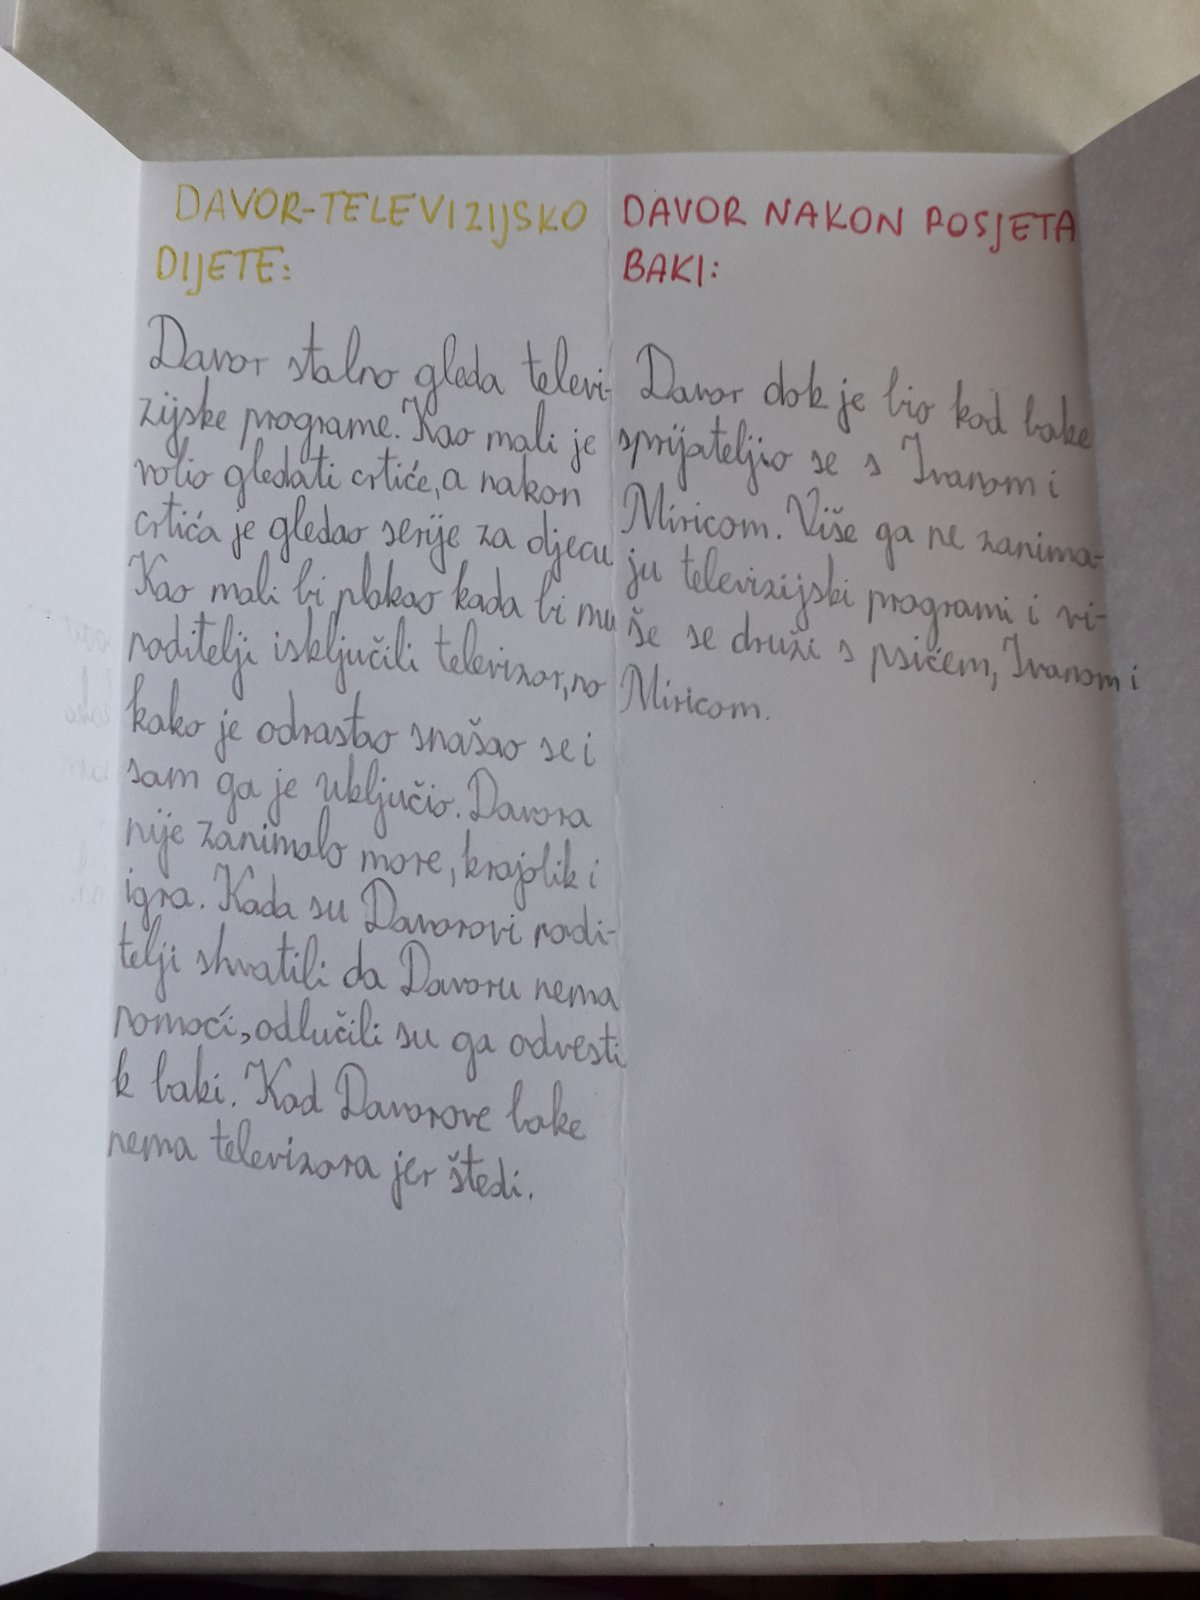 DAVOR-TELEVIZIJSKO
DIJETE:
Davor stalno gleda televi-
zijske programe. Kao mali je
volio gledati crtiće, a nakon
crtića je gledao serije za djecu
Kao mali bi plakao kada bi mu
roditelji isključili televizor, no
kako je odrastao snašao se i
sam ga je uključio. Davora
nije zanimalo more, krajolik i
igra. Kada su Davorovi rodi-
telji shvatili da Davoru nema
pomoći, odlučili su ga odvesti
k baki. Kod Davorove bake
nema televizora jer štedi.
DAVOR NAKON POSJETA
BAKI:
Davor dok je bio kod bake
sprijateljio se s Ivanom i
Miricom. Više ga ne zanima-
ju televizijski programi i vi-
še se druži s psićem, Ivanom i
Miricom.